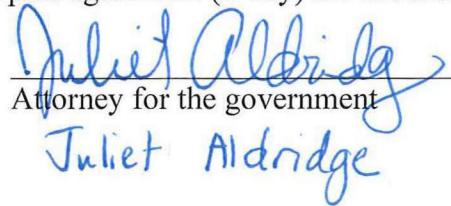 Juliet Aldridg
Attorney for the government
Juliet Aldridge